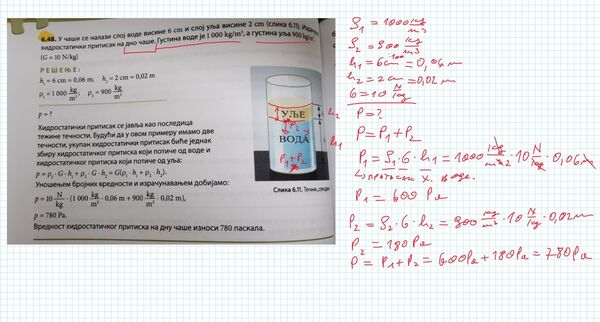 6.48. У чаши се налази слој воде висине 6 cm и слој уља висине 2 cm (слика 6.11).
хидростатички притисак на дно чаше. Густина воде је 1 000 kg/m³, а густина уља 900 kg/m³.
(G = 10 N/kg)
РЕШЕЊЕ:
h₁ = 6 cm = 0,06 m; h₂ = 2 cm = 0,02 m
ρ₁ = 1 000 kg/m³, ρ₂ = 900 kg/m³
p = ?
Хидростатички притисак се јавља као последица
тежине течности. Будући да у овом примеру имамо две
течности, укупан хидростатички притисак биће једнак
збиру хидростатичког притиска који потиче од воде и
хидростатичког притиска који потиче од уља:
p = ρ₁ · G · h₁ + ρ₂ · G · h₂ = G(ρ₁ · h₁ + ρ₂ · h₂).
Уношењем бројних вредности и израчунавањем добијамо:
p = 10 N/kg · (1 000 kg/m³ · 0,06 m + 900 kg/m³ · 0,02 m),
p = 780 Pa.
Вредност хидростатичког притиска на дну чаше износи 780 паскала.
УЉЕ
P₂
ВОДА
P₁+P₂
h₂
h₁
Слика 6.11.
ρ₁ = 1000 kg/m³
ρ₂ = 900 kg/m³
h₁ = 6cm = 0,06m
h₂ = 2cm = 0,02m
G = 10 N/kg
P = ?
P = P₁ + P₂
P₁ = ρ₁ · G · h₁ = 1000 kg/m³ · 10 N/kg · 0,06m
притисак х. воде.
P₁ = 600 Pa
P₂ = ρ₂ · G · h₂ = 900 kg/m³ · 10 N/kg · 0,02m
P₂ = 180 Pa
P = P₁ + P₂ = 600Pa + 180Pa = 780Pa